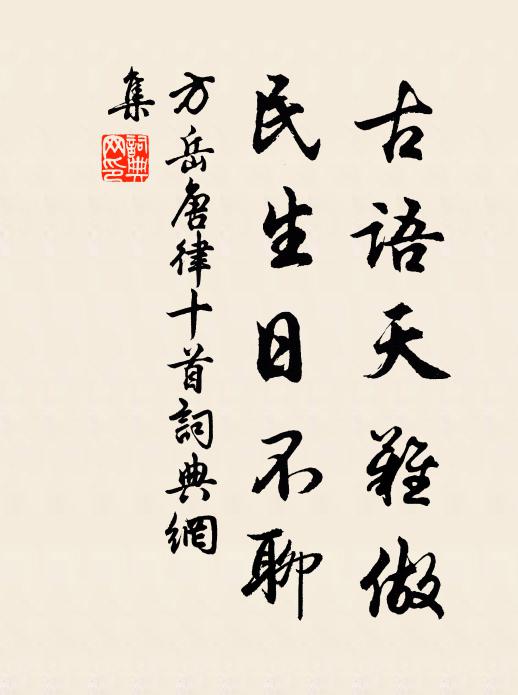 古語天難做
民生日不聊
方岳唐律十首詞典網
集
詞典網印